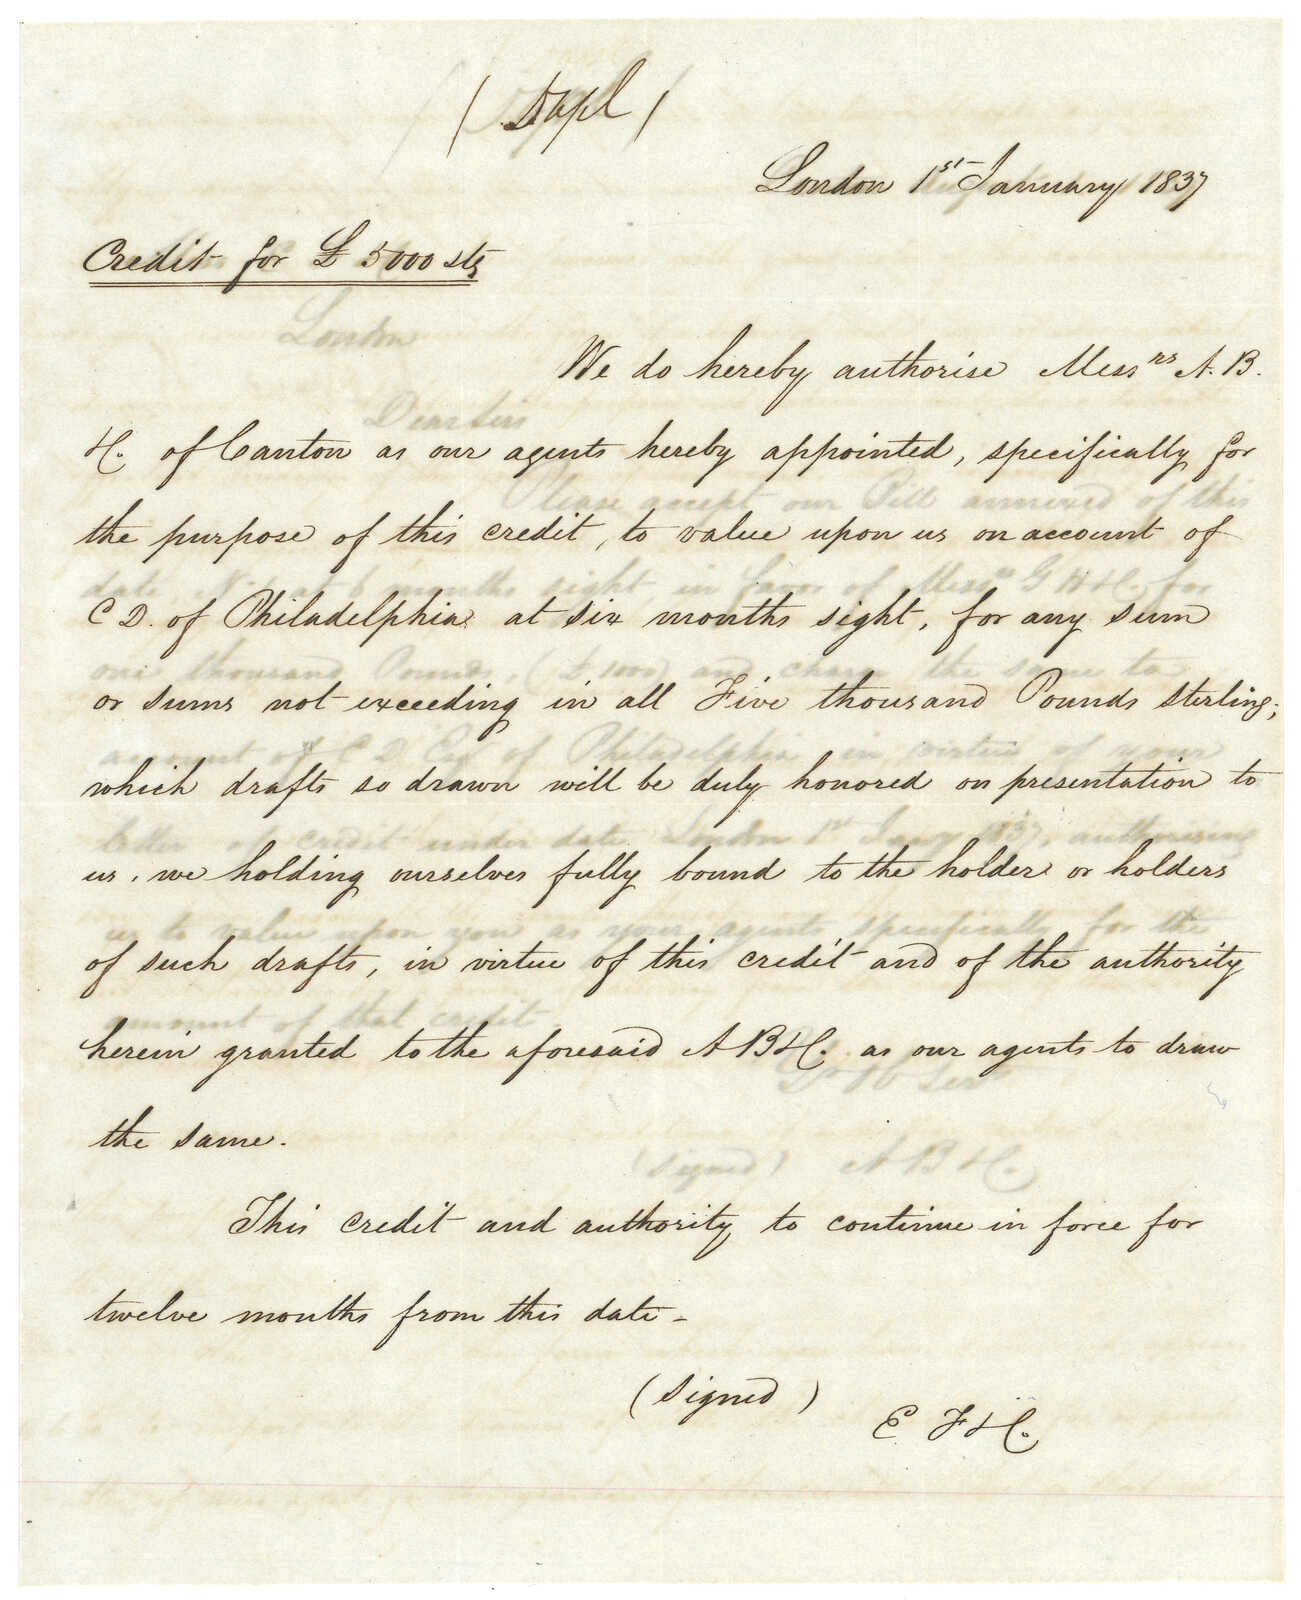 ( Dupl )
London 1st January 1837
Credit for £ 5000 stg
We do hereby authorise Messrs A. B.
&C. of Canton as our agents hereby appointed, specifically for
the purpose of this credit, to value upon us on account of
C D. of Philadelphia at six months sight, for any sum
or sums not exceeding in all Five thousand Pounds sterling;
which drafts so drawn will be duly honored on presentation to
us, we holding ourselves fully bound to the holder or holders
of such drafts, in virtue of this credit and of the authority
herein granted to the aforesaid A B &C. as our agents to draw
the same.
This credit and authority to continue in force for
twelve months from this date -
(signed)
E F &C.